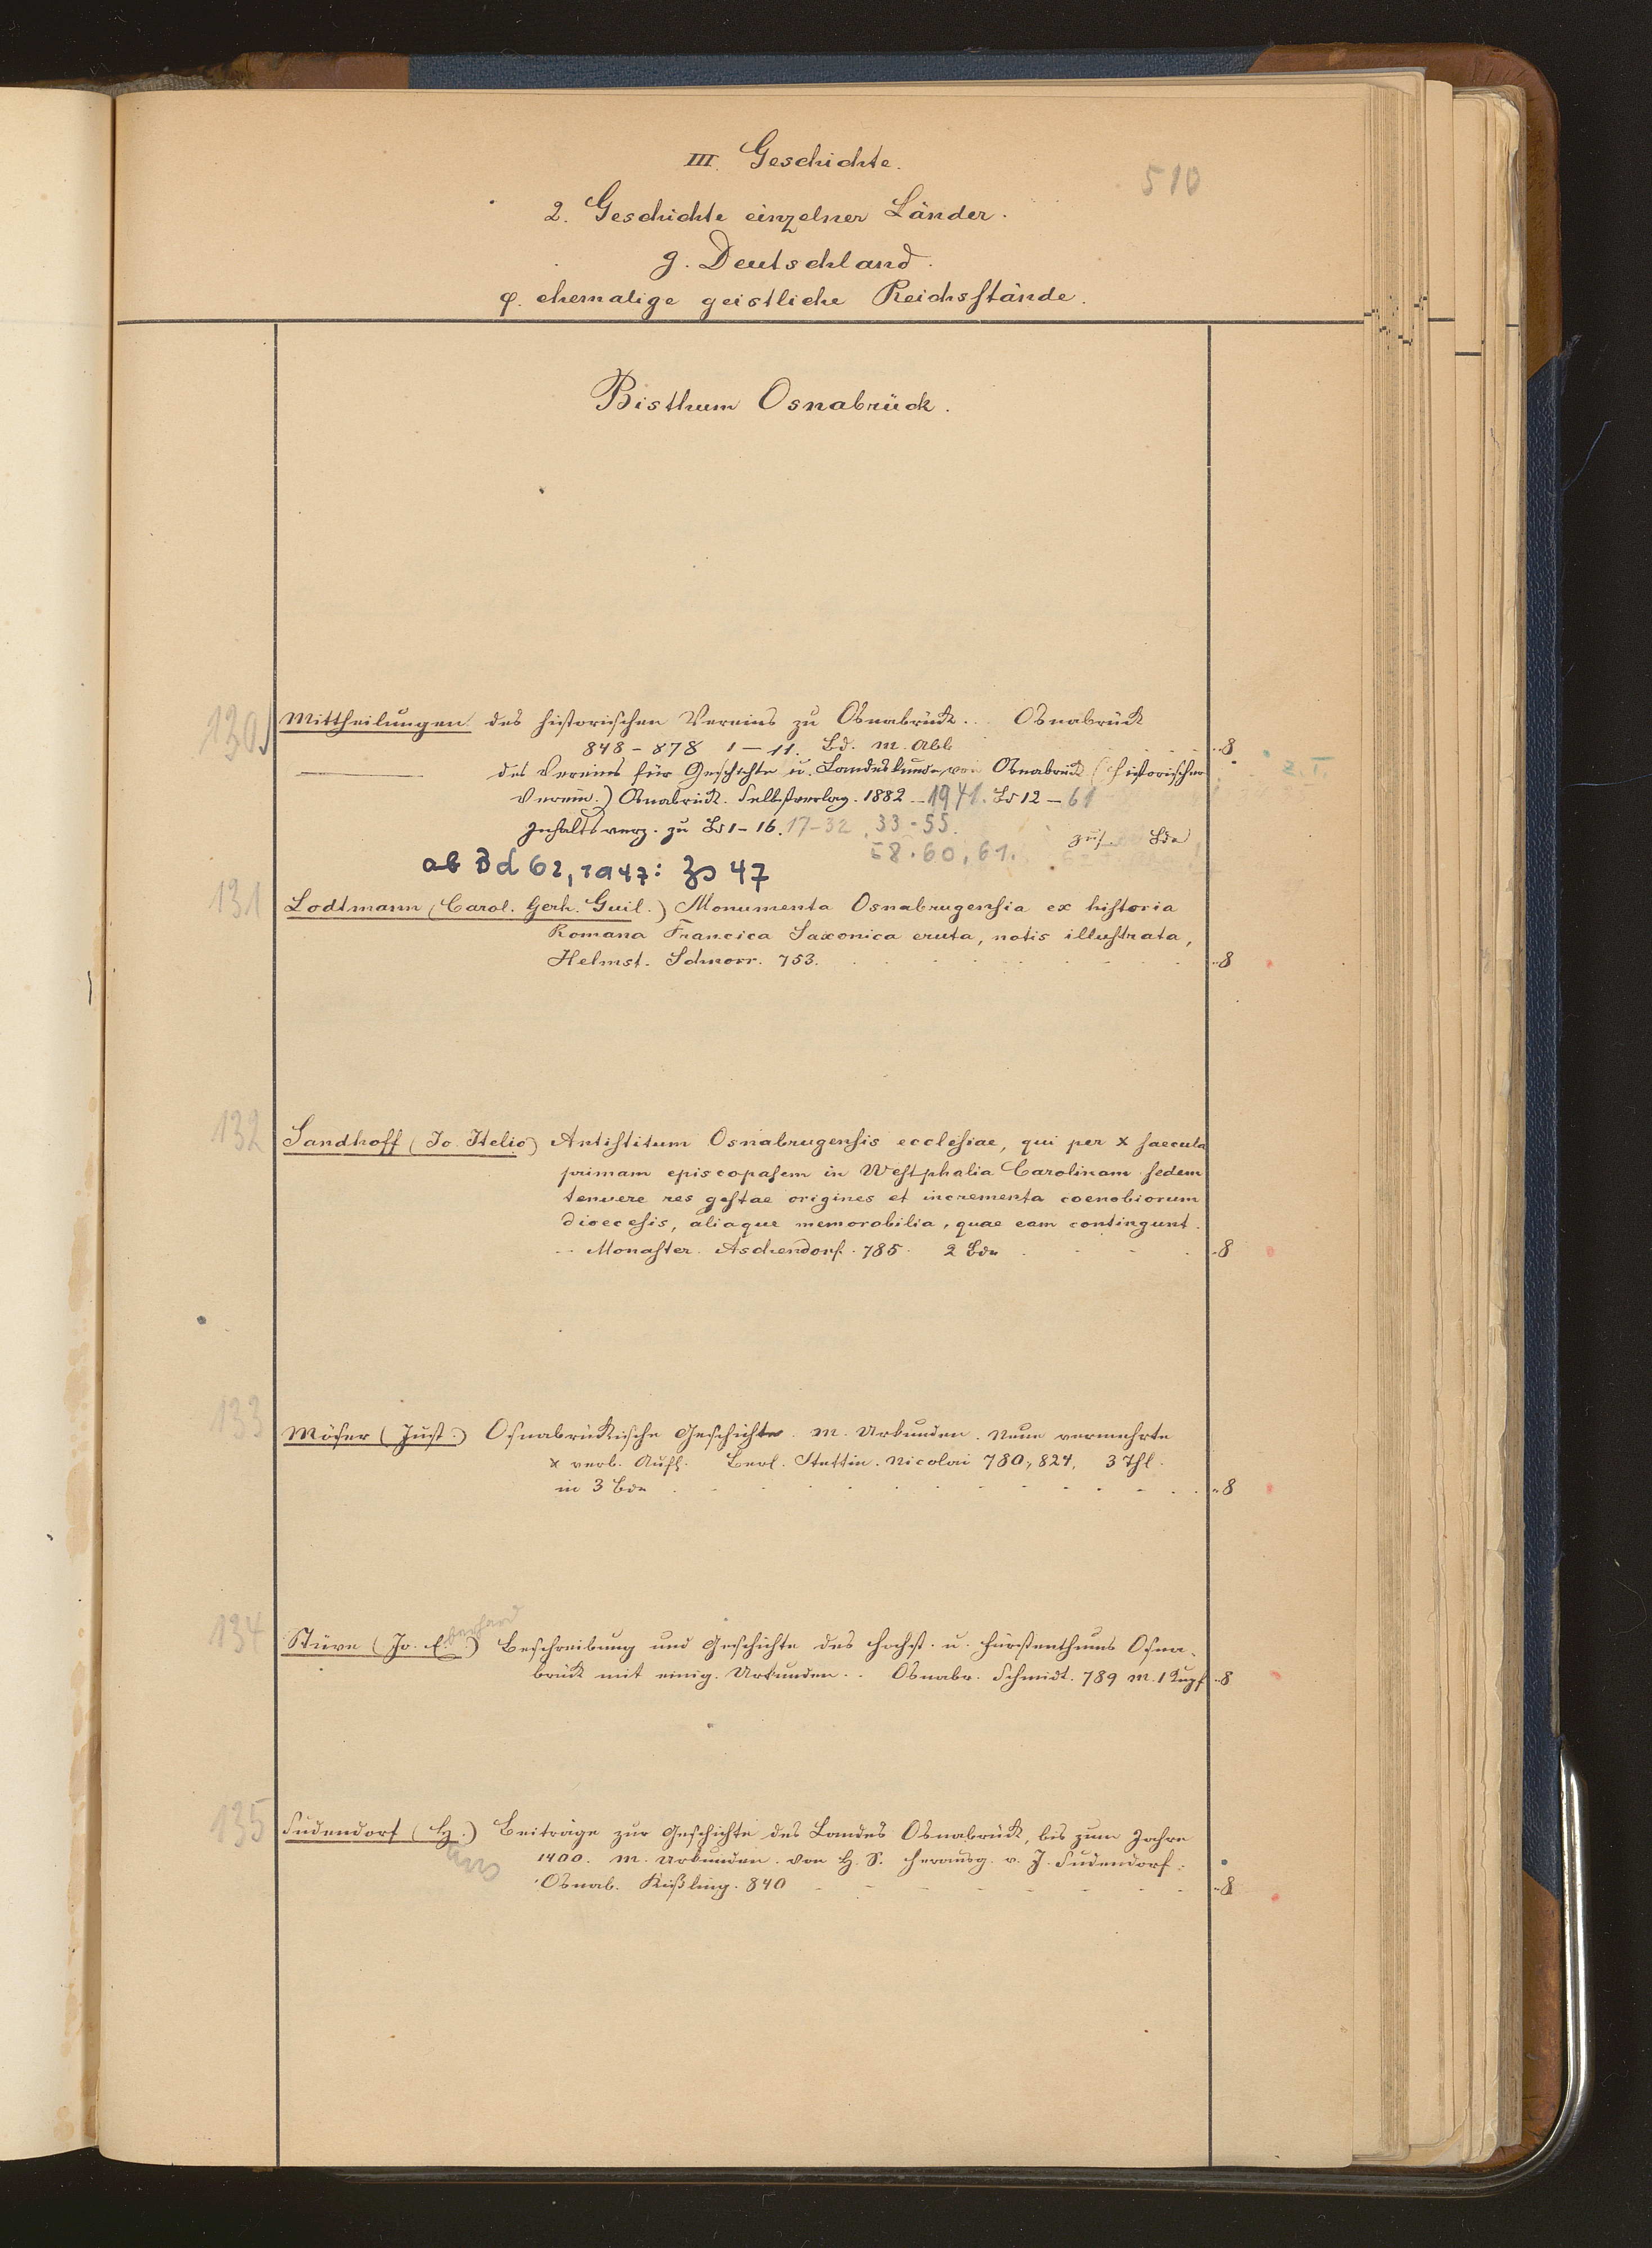 510
III. Geschichte.
2. Geschichte einzelner Länder.
g. Deutschland.
φ. ehemalige geistliche Reichsstände.
Bisthum Osnabrück.
130 Mittheilungen des historischen Vereins zu Osnabrück. Osnabrück
848-878 1-11. Bd. m. Abb. 8
des Vereins für Geschichte u. Landeskunde von Osnabrück (Historischer z. T.
Verein.) Osnabrück. Selbstverlag. 1882-1941. Bd 12-61
Inhaltsverz. zu Bd 1-16. 17-32, 33-55. zus. Bde
58. 60, 61.
ab Bd 62, 1947: Zs 47
131 Lodtmann (Carol. Gerh. Guil.) Monumenta Osnabrugensia ex historia
Romana Francica Saxonica eruta, notis illustrata,
Helmst. Schnorr. 753. 8
132 Sandhoff (Jo. Itelio) Antistitum Osnabrugensis ecclesiae, qui per X saecula
primam episcopalem in Westphalia Carolinam sedem
tenuere res gestae origines et incrementa coenobiorum
dioecesis, aliaque memorabilia, quae eam contingunt.
Monaster. Aschendorf. 785. 2 Bde 8
133 Möser (Just.) Osnabrückische Geschichte. m. Urkunden. Neue vermehrte
x verb. Aufl. Berl. Stettin. Nicolai 780, 824, 3 Thl.
in 3 Bde 8
134 Stüve (Jo. Eberhard) Beschreibung und Geschichte des Hochst. u. Fürstenthums Osna-
brück mit einig. Urkunden. Osnabr. Schmidt. 789 m. 1 Kupf 8
135 Sudendorf (H.) Beiträge zur Geschichte des Landes Osnabrück, bis zum Jahre
1400. m. Urkunden. von H. S. herausg. v. J. Sudendorf.
Osnab. Kißling. 840 8